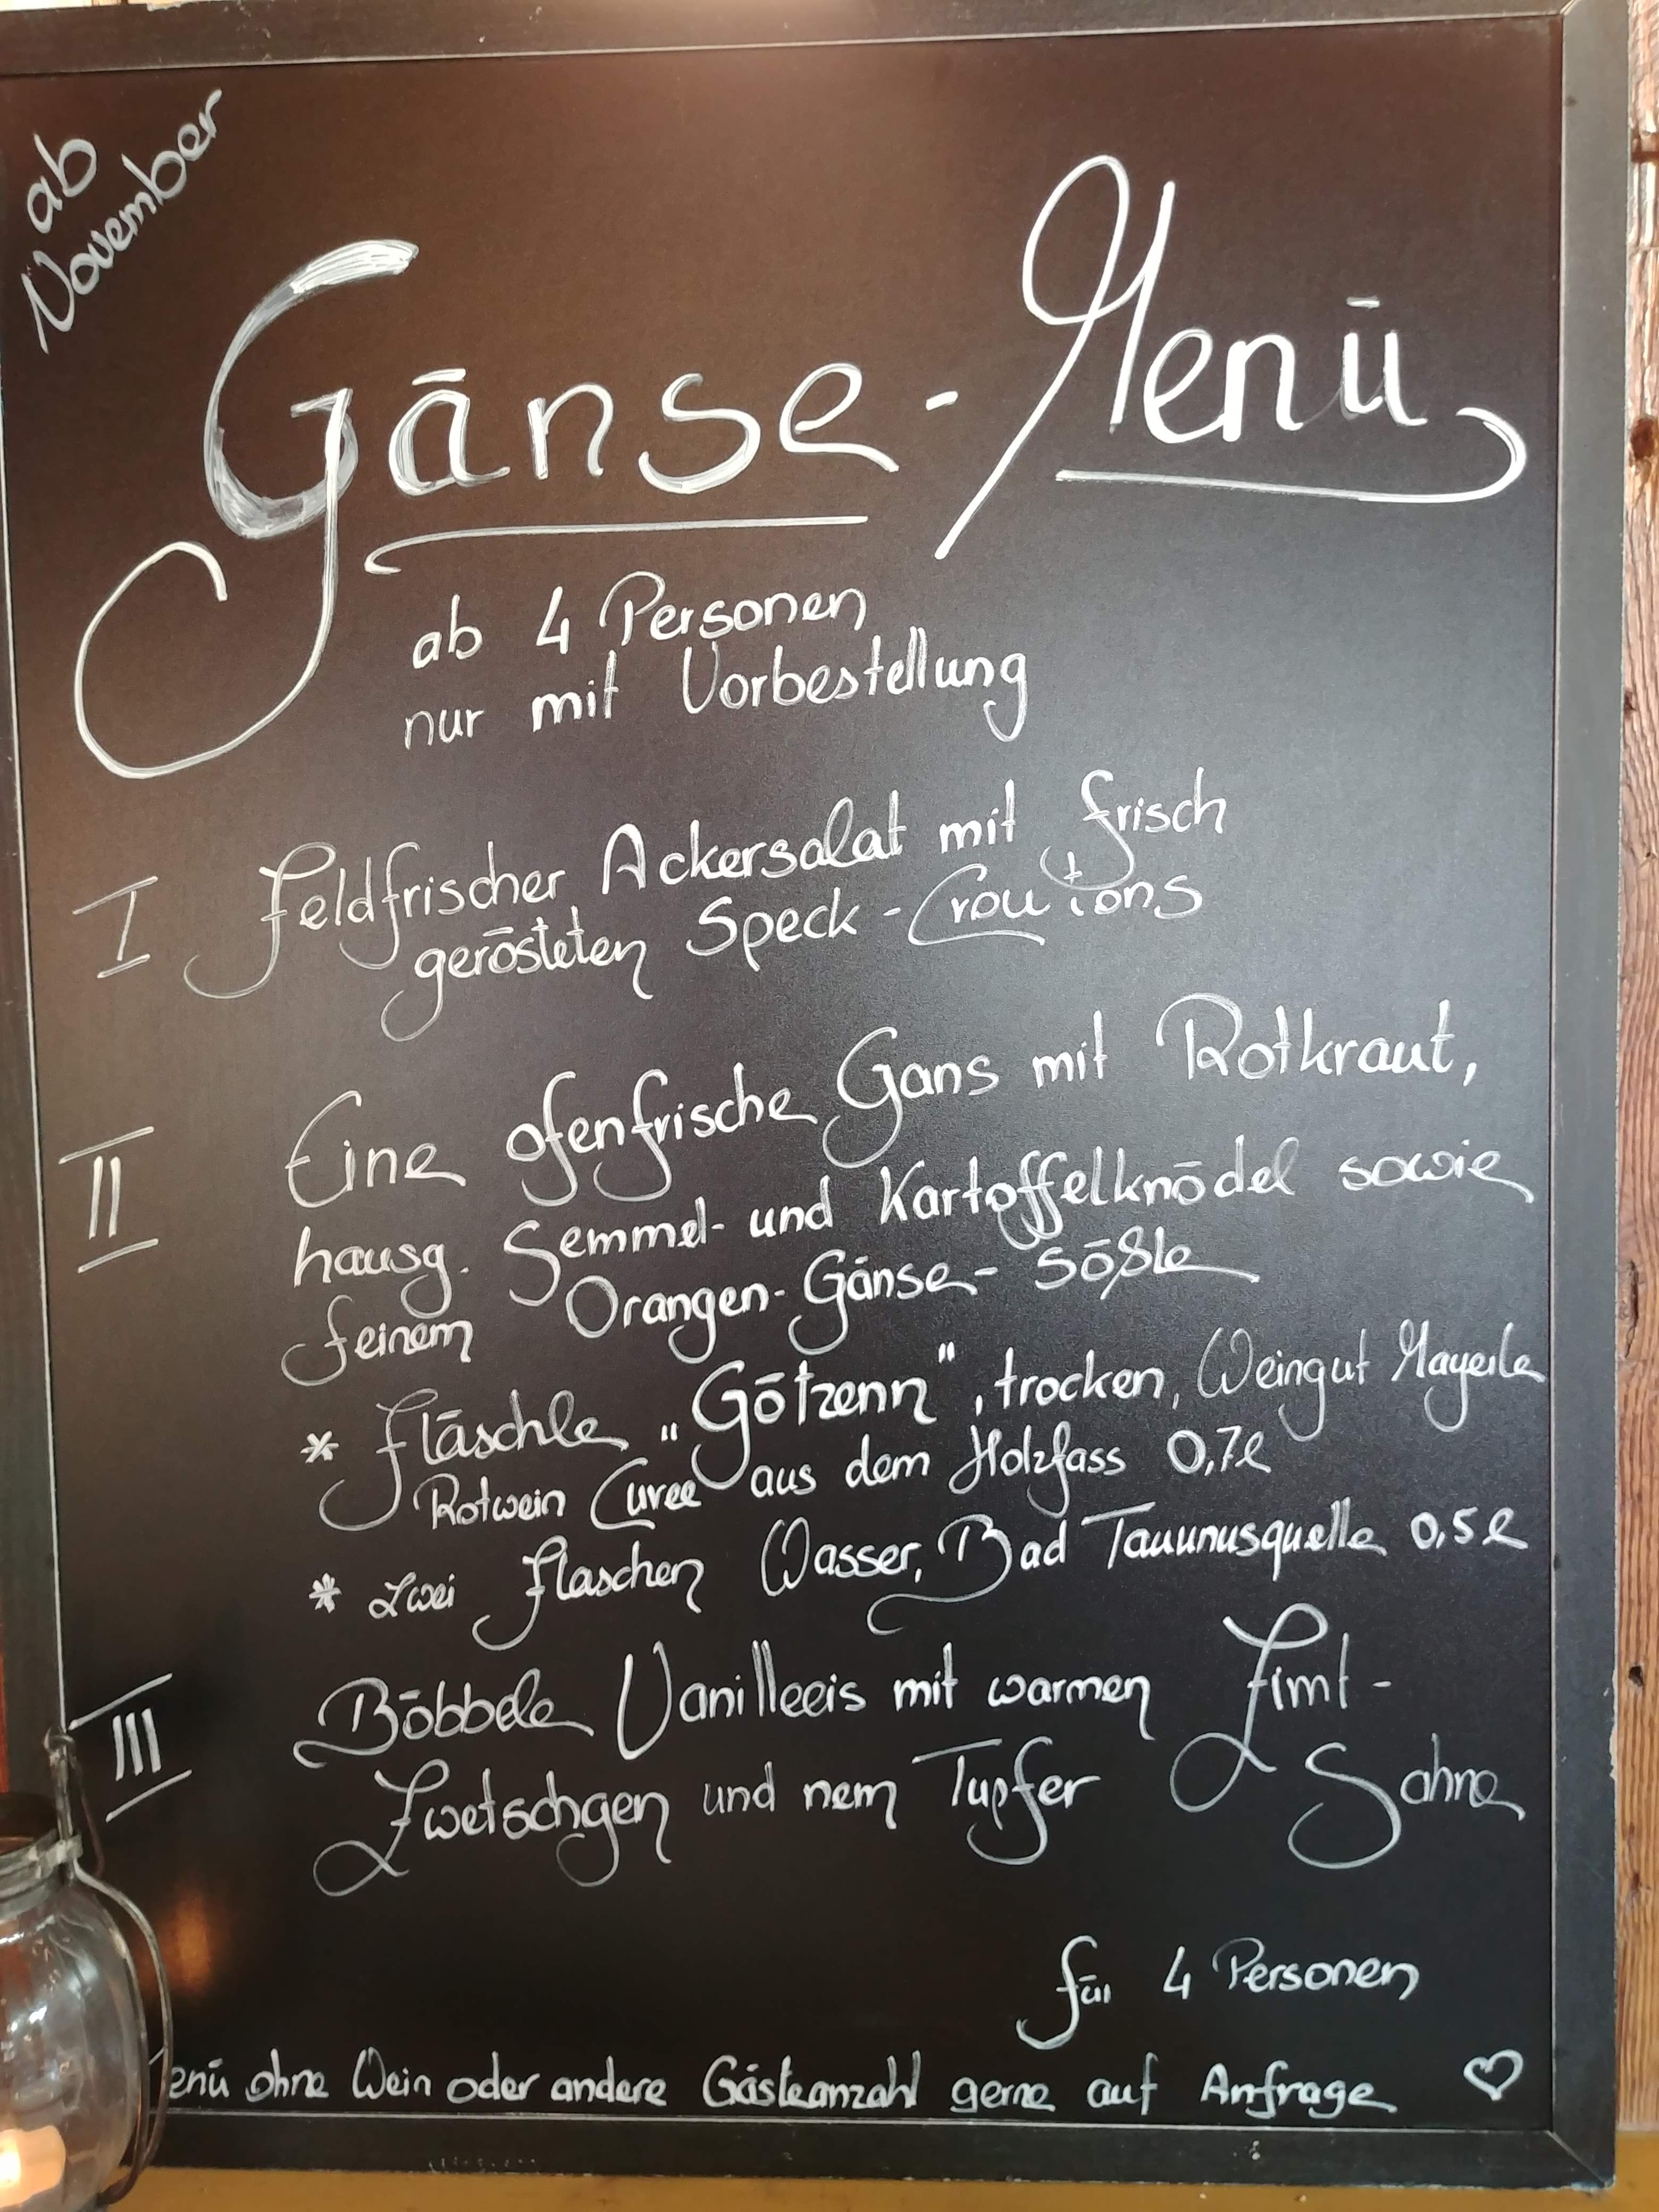 ab
November
Gänse-Menü
ab 4 Personen
nur mit Vorbestellung
I Feldfrischer Ackersalat mit frisch
gerösteten Speck-Croutions
II Eine ofenfrische Gans mit Rotkraut,
hausg. Semmel- und Kartoffelknödel sowie
feinem Orangen-Gänse-Sößle
* Fläschle „Götzenn", trocken, Weingut Mayerle
Rotwein Cuvee aus dem Holzfass 0,7l
* zwei Flaschen Wasser, Bad Tauunusquelle 0,5l
III Böbbele Vanilleeis mit warmen Zimt-
Zwetschgen und nem Tupfer Sahne
für 4 Personen
enü ohne Wein oder andere Gästeanzahl gerne auf Anfrage ♡